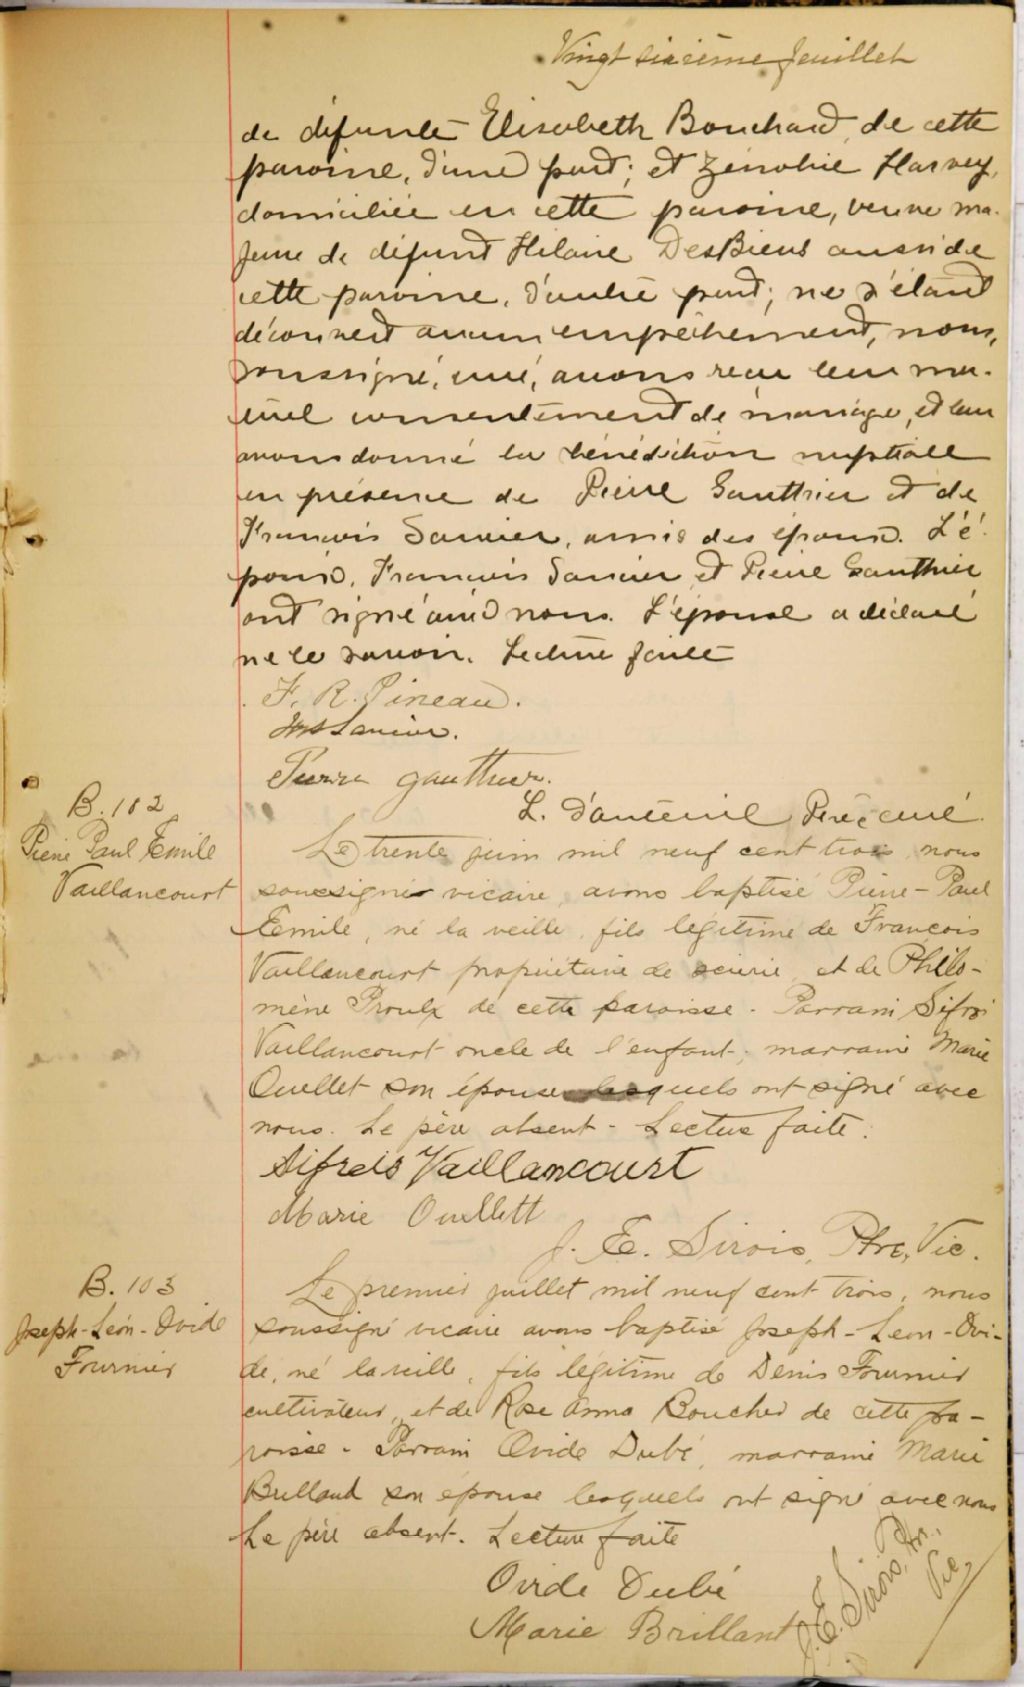 Vingt sixième feuillet
de défunte Elisabeth Bouchard, de cette
paroisse, d'une part; et Zénobie Harvey,
domiciliée en cette paroisse, veuve ma-
jeure de défunt Hilaire DesBiens aussi de
cette paroisse, d'autre part; ne s'étant
découvert aucun empêchement, nous,
soussigné, curé, avons reçu leur mu-
tuel consentement de mariage, et leur
avons donné la bénédiction nuptiale
en présence de Pierre Gauthier et de
François Savier, amis des époux. L'é-
poux, François Savier et Pierre Gauthier
ont signé avec nous. L'épouse a déclaré
ne le savoir. Lecture faite
F. R. Pineau.
Pierre gauthier.
L. d'Auteuil Ptre, curé.
B. 102
Pierre Paul Emile
Vaillancourt
Le trente juin mil neuf cent trois, nous
soussigné vicaire, avons baptisé Pierre-Paul
Emile, né la veille, fils légitime de François
Vaillancourt propriétaire de scierie et de Philo-
mène Proulx de cette paroisse. Parrain Sifroi
Vaillancourt oncle de l'enfant; marraine Marie
Ouellet son épouse lesquels ont signé avec
nous. Le père absent - Lecture faite.
Sifrois Vaillancourt
Marie Ouellett
J. E. Sirois, Ptre, Vic.
B. 103
Joseph-Léon-Ovide
Fournier
Le premier juillet mil neuf cent trois, nous
soussigné vicaire avons baptisé Joseph-Leon-Ovi-
de, né la veille, fils légitime de Denis Fournier
cultivateur, et de Rose Anna Boucher de cette pa-
roisse. Parrain Ovide Dubé, marraine Marie
Brillant son épouse lesquels ont signé avec nous
Le père absent. Lecture faite
Ovide Dubé
Marie Brillant
J. E. Sirois, Ptr, Vic.